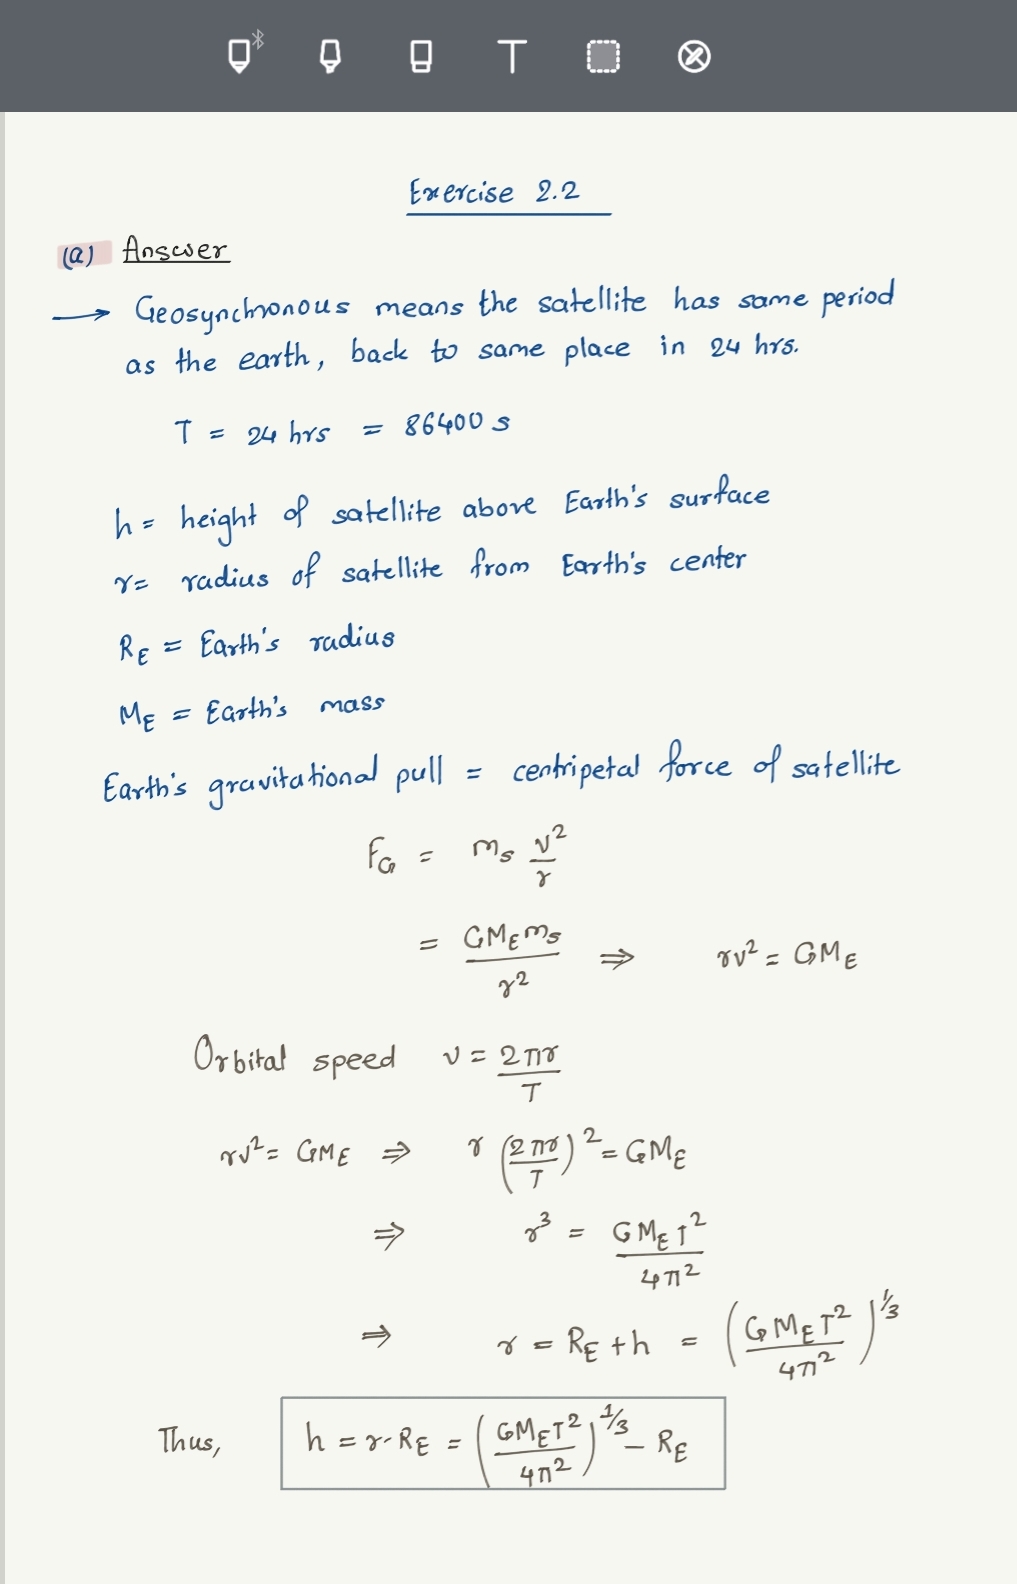 Exercise 2.2
(a) Answer
→ Geosynchronous means the satellite has same period
as the earth, back to same place in 24 hrs.
T = 24 hrs = 86400 s
h = height of satellite above Earth's surface
r = radius of satellite from Earth's center
R_E = Earth's radius
M_E = Earth's mass
Earth's gravitational pull = centripetal force of satellite
F_G = m_s v²/r
= GM_E m_s / r² ⇒ rv² = GM_E
Orbital speed v = 2πr/T
rv² = GM_E ⇒ r (2πr/T)² = GM_E
⇒ r³ = GM_E T² / 4π²
⇒ r = R_E + h = (GM_E T² / 4π²)^1/3
Thus, h = r - R_E = (GM_E T² / 4π²)^1/3 - R_E